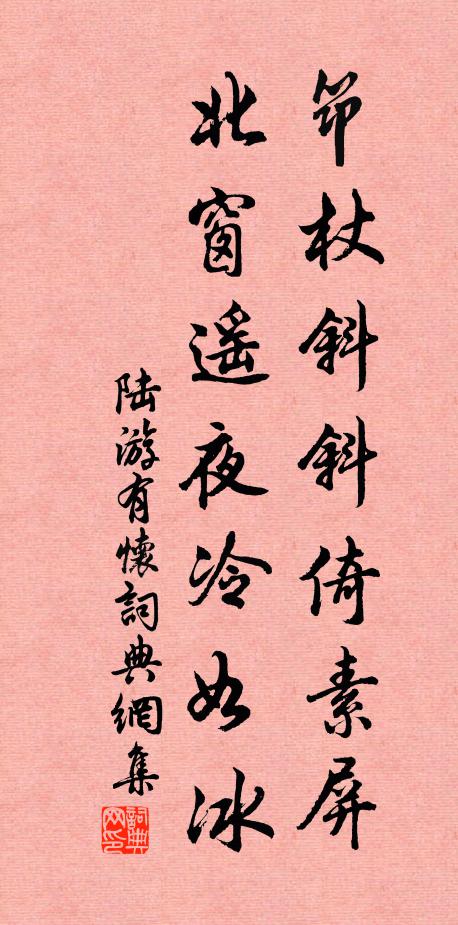 筇杖斜斜倚素屏
北窗遥夜冷如冰
陆游有懷詞典網集
詞典网印